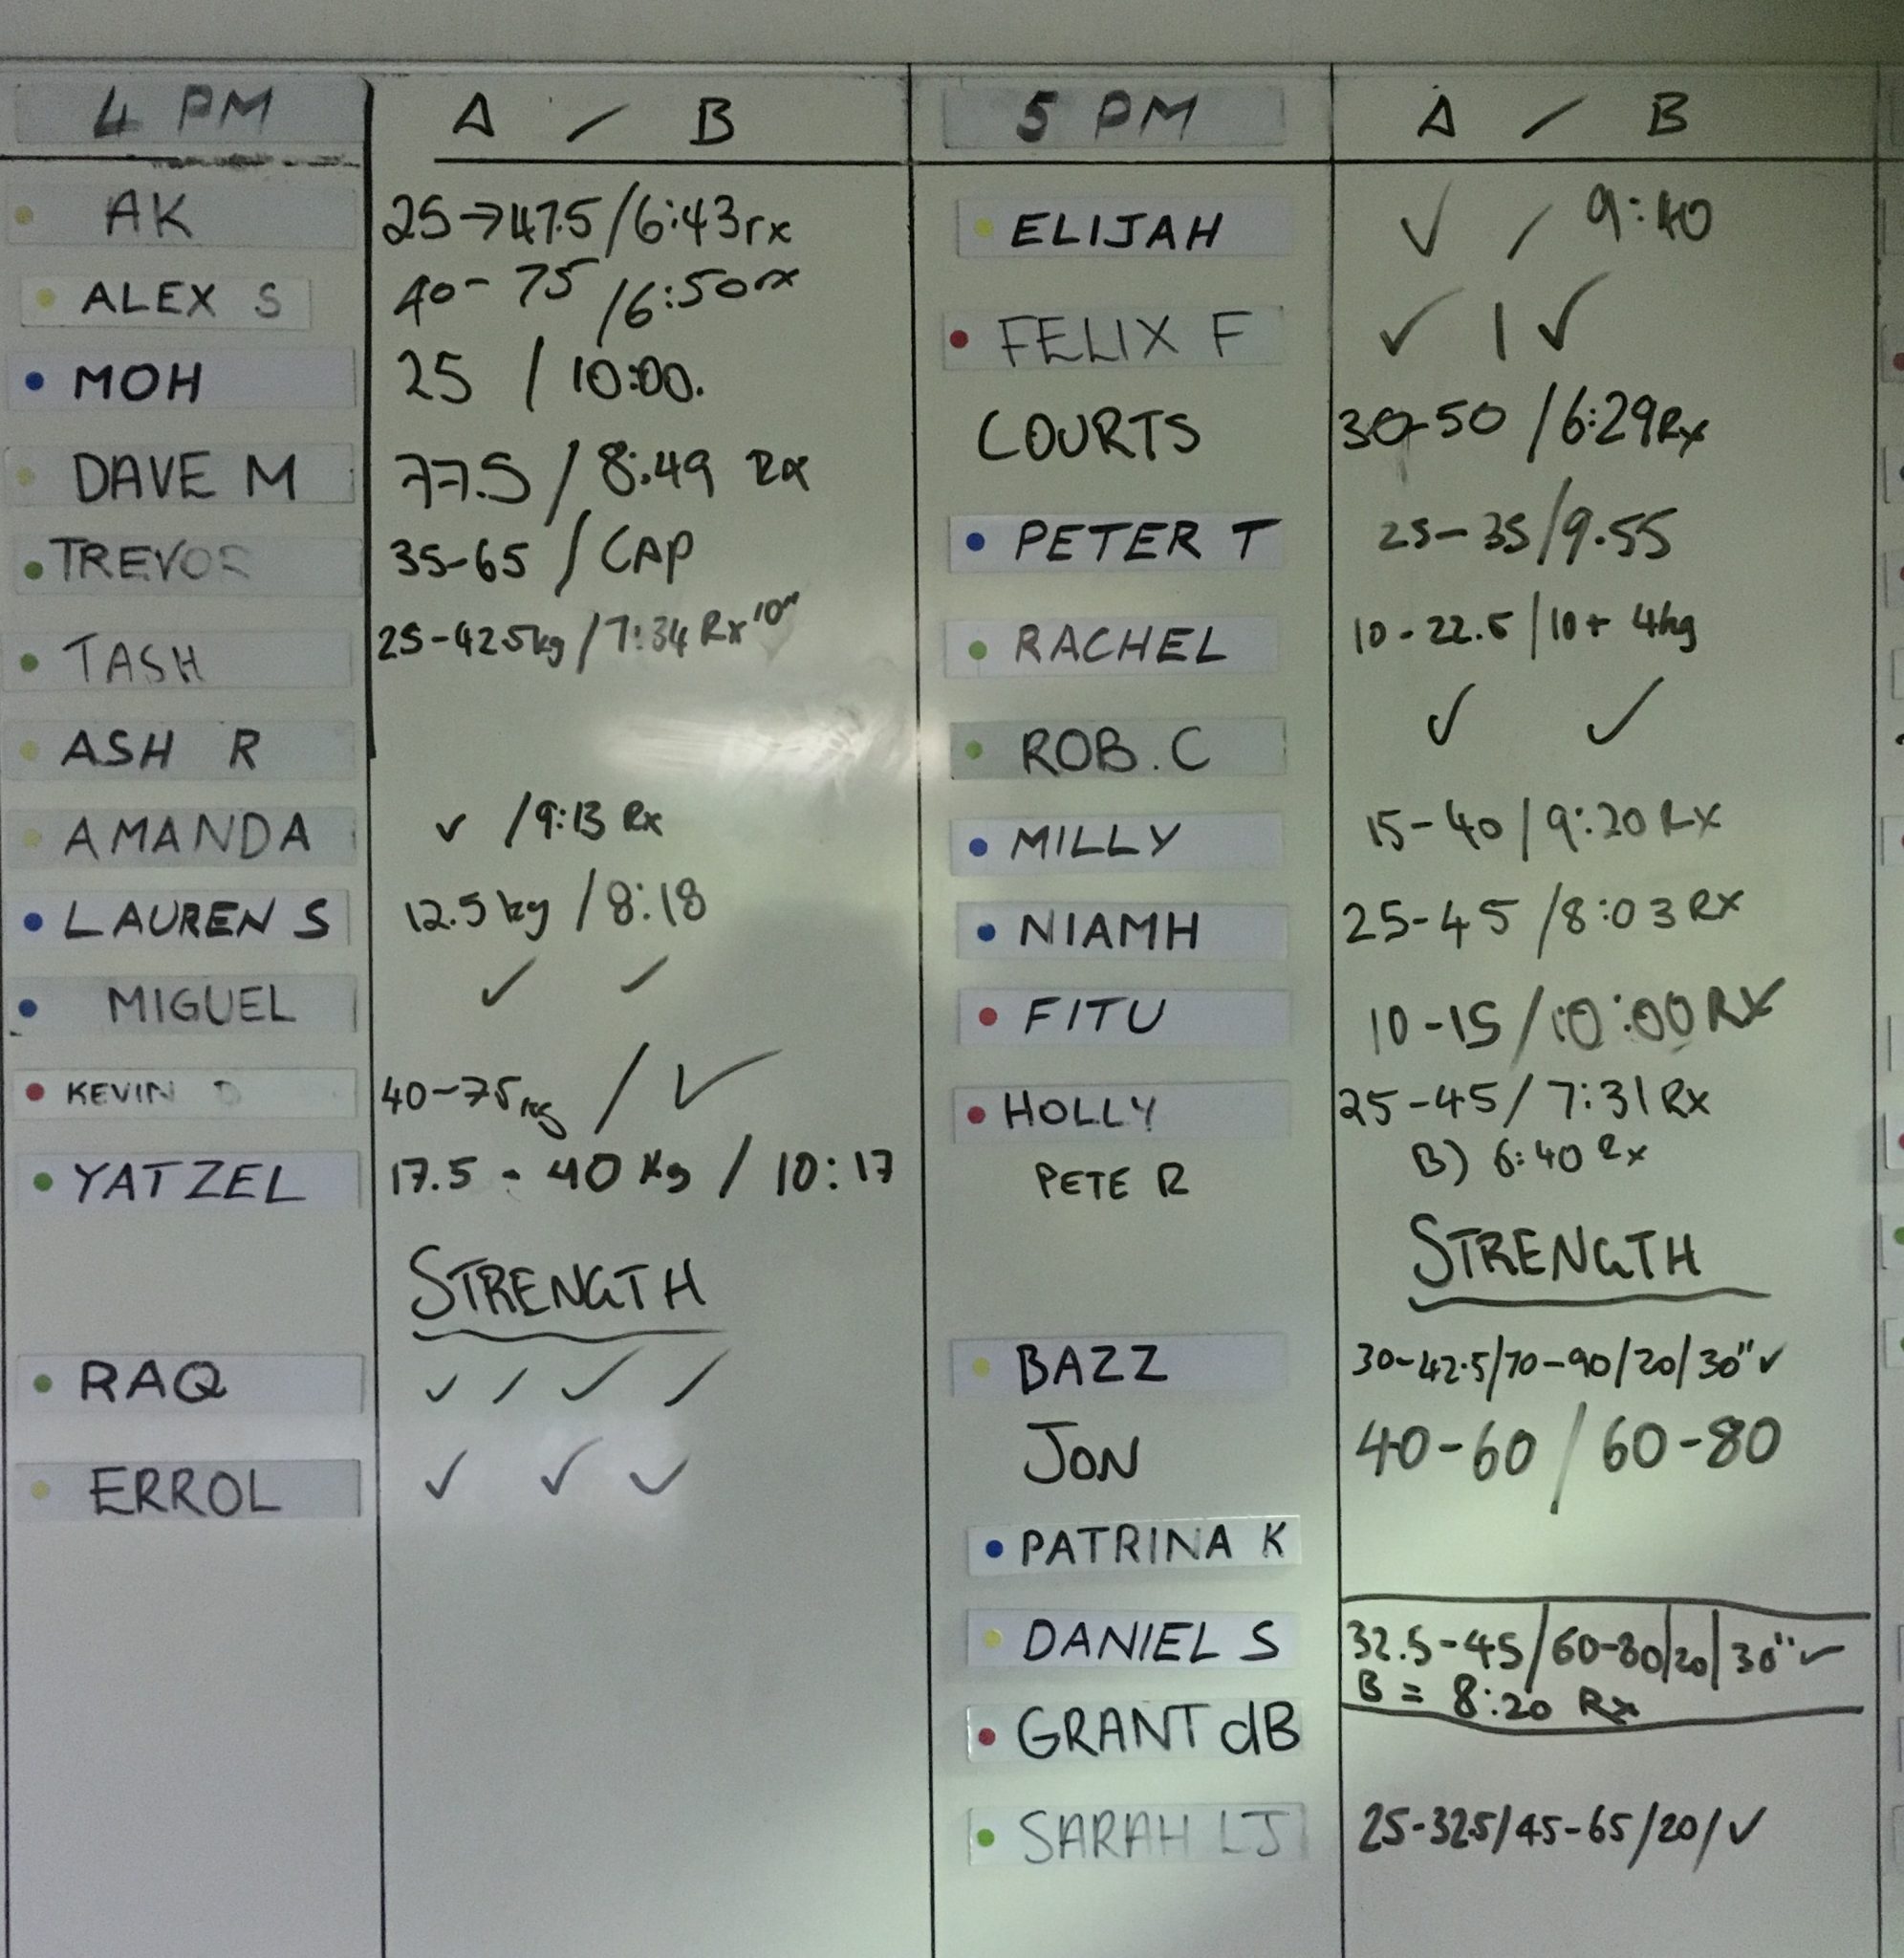 4 PM A / B
AK 25→47.5/6:43rx
ALEX S 40-75/6:50rx
MOH 25 / 10:00.
DAVE M 77.5/8:49 Rx
TREVOR 35-65/CAP
TASH 25-42.5kg/7:34 Rx 10"
ASH R
AMANDA ✓ /9:13 Rx
LAUREN S 12.5kg/8:18
MIGUEL ✓ ✓
KEVIN D 40-75kg / ✓
YATZEL 17.5 - 40 Kg / 10:17
STRENGTH
RAQ ✓ / ✓ /
ERROL ✓ ✓ ✓
5 PM A / B
ELIJAH ✓ / 9:40
FELIX F ✓ | ✓
COURTS 30-50 /6:29Rx
PETER T 25-35/9.55
RACHEL 10-22.5|10+ 4kg
ROB.C ✓ ✓
MILLY 15-40/9:20 RX
NIAMH 25-45/8:03 RX
FITU 10-15/10:00 RX
HOLLY 25-45/7:31 Rx
PETE R B) 6:40 Rx
STRENGTH
BAZZ 30-42.5/70-90/20/30" ✓
JON 40-60/60-80
PATRINA K
DANIEL S 32.5-45/60-80/20/30" ✓
B = 8:20 Rx
GRANT dB
SARAH LJ 25-32.5/45-65/20/✓